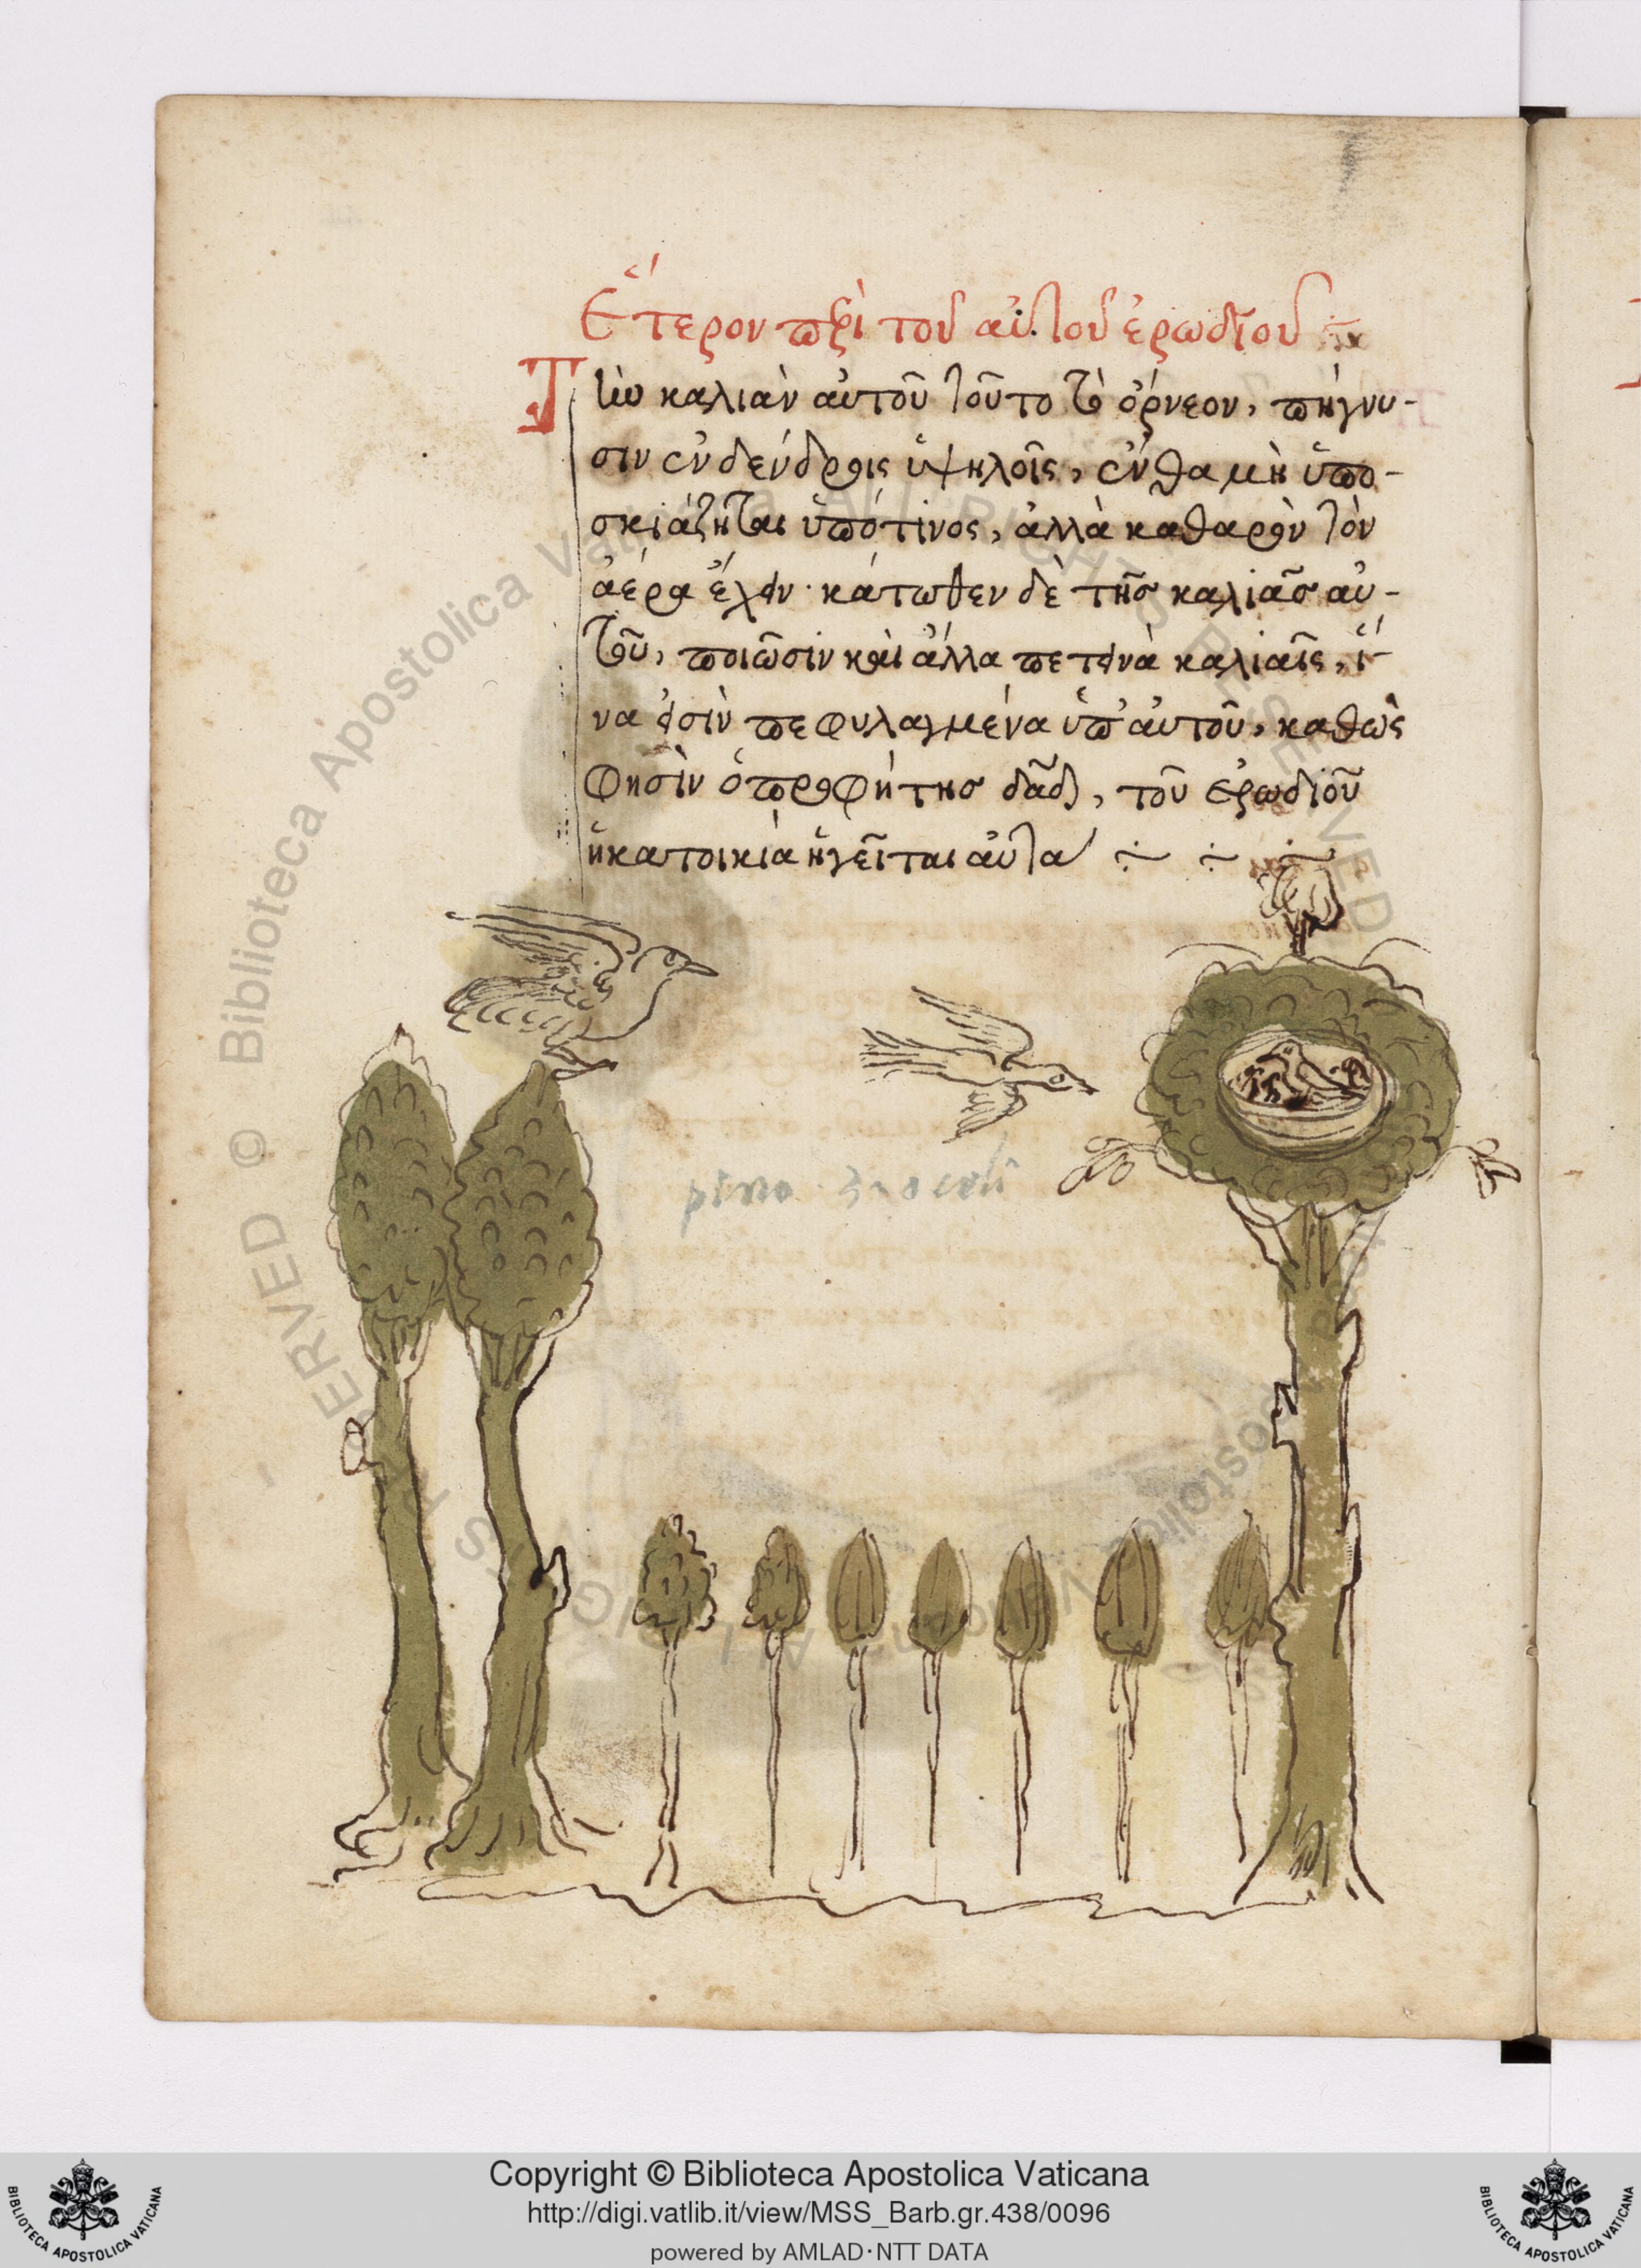 Ἕτερον περὶ τοῦ αὐτοῦ ἐρωδιοῦ
Τὴν καλιὰν αὐτοῦ τοῦτο τὸ ὄρνεον, πήγνυ-
σιν ἐν δένδροις ὑψηλοῖς, ἔνθα μὴ ὑπο-
σκιάζηται ὑπό τινος, ἀλλὰ καθαρὸν τὸν
ἀέρα ἕλειν· κάτωθεν δὲ τῆς καλιᾶς αὐ-
τοῦ, ποιῶσιν καὶ ἄλλα πετεινὰ καλιαῖς, ἵ-
να εἰσὶν πεφυλαγμένα ὑπ' αὐτοῦ, καθὼς
φησὶν ὁ προφήτης δᾶδ, τοῦ ἐρωδιοῦ
ἡ κατοικία ἡγεῖται αὐτα
Biblioteca Apostolica Vaticana
Copyright © Biblioteca Apostolica Vaticana
http://digi.vatlib.it/view/MSS_Barb.gr.438/0096
powered by AMLAD·NTT DATA
BIBLIOTECA APOSTOLICA VATICANA
BIBLIOTECA APOSTOLICA VATICANA